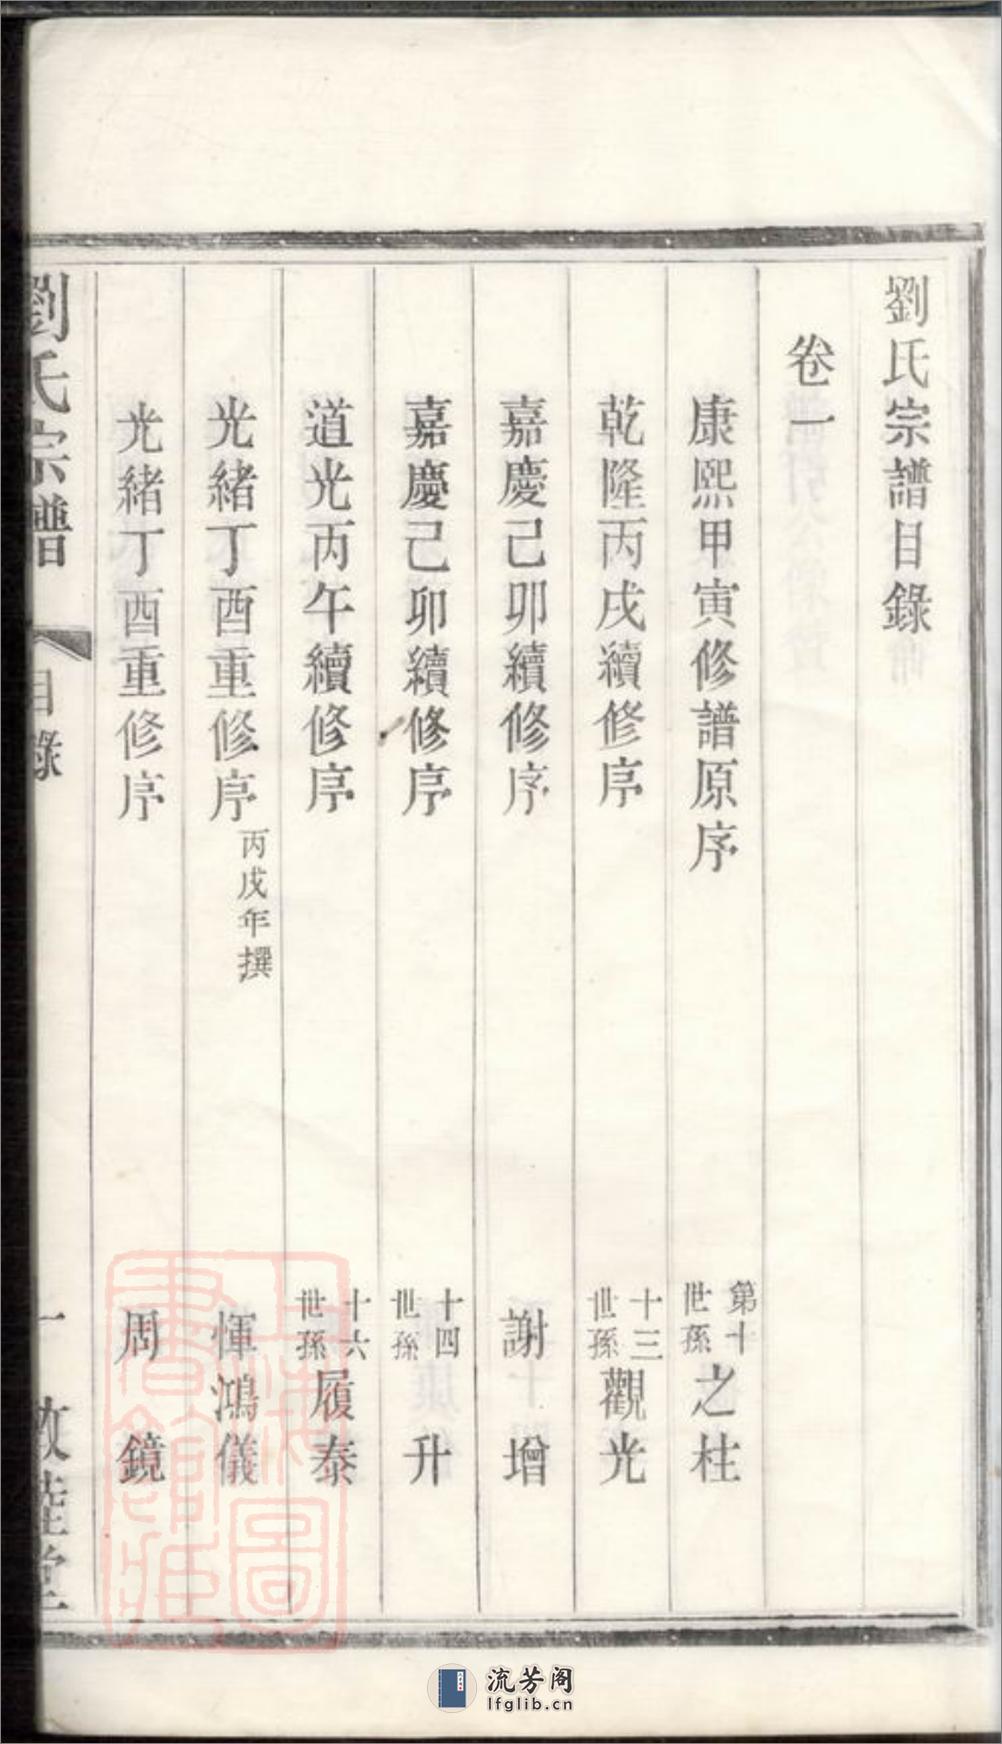 劉氏宗譜目錄
卷一
康熙甲寅修譜原序 第十世孫之柱
乾隆丙戌續修序 十三世孫觀光
嘉慶己卯續修序 謝增
嘉慶己卯續修序 十四世孫升
道光丙午續修序 十六世孫履泰
光緒丁酉重修序 丙戌年撰 惲鴻儀
光緒丁酉重修序 周鏡
劉氏宗譜 目錄 一 敦睦堂
上海圖書館藏
流芳阁
lfglib.cn